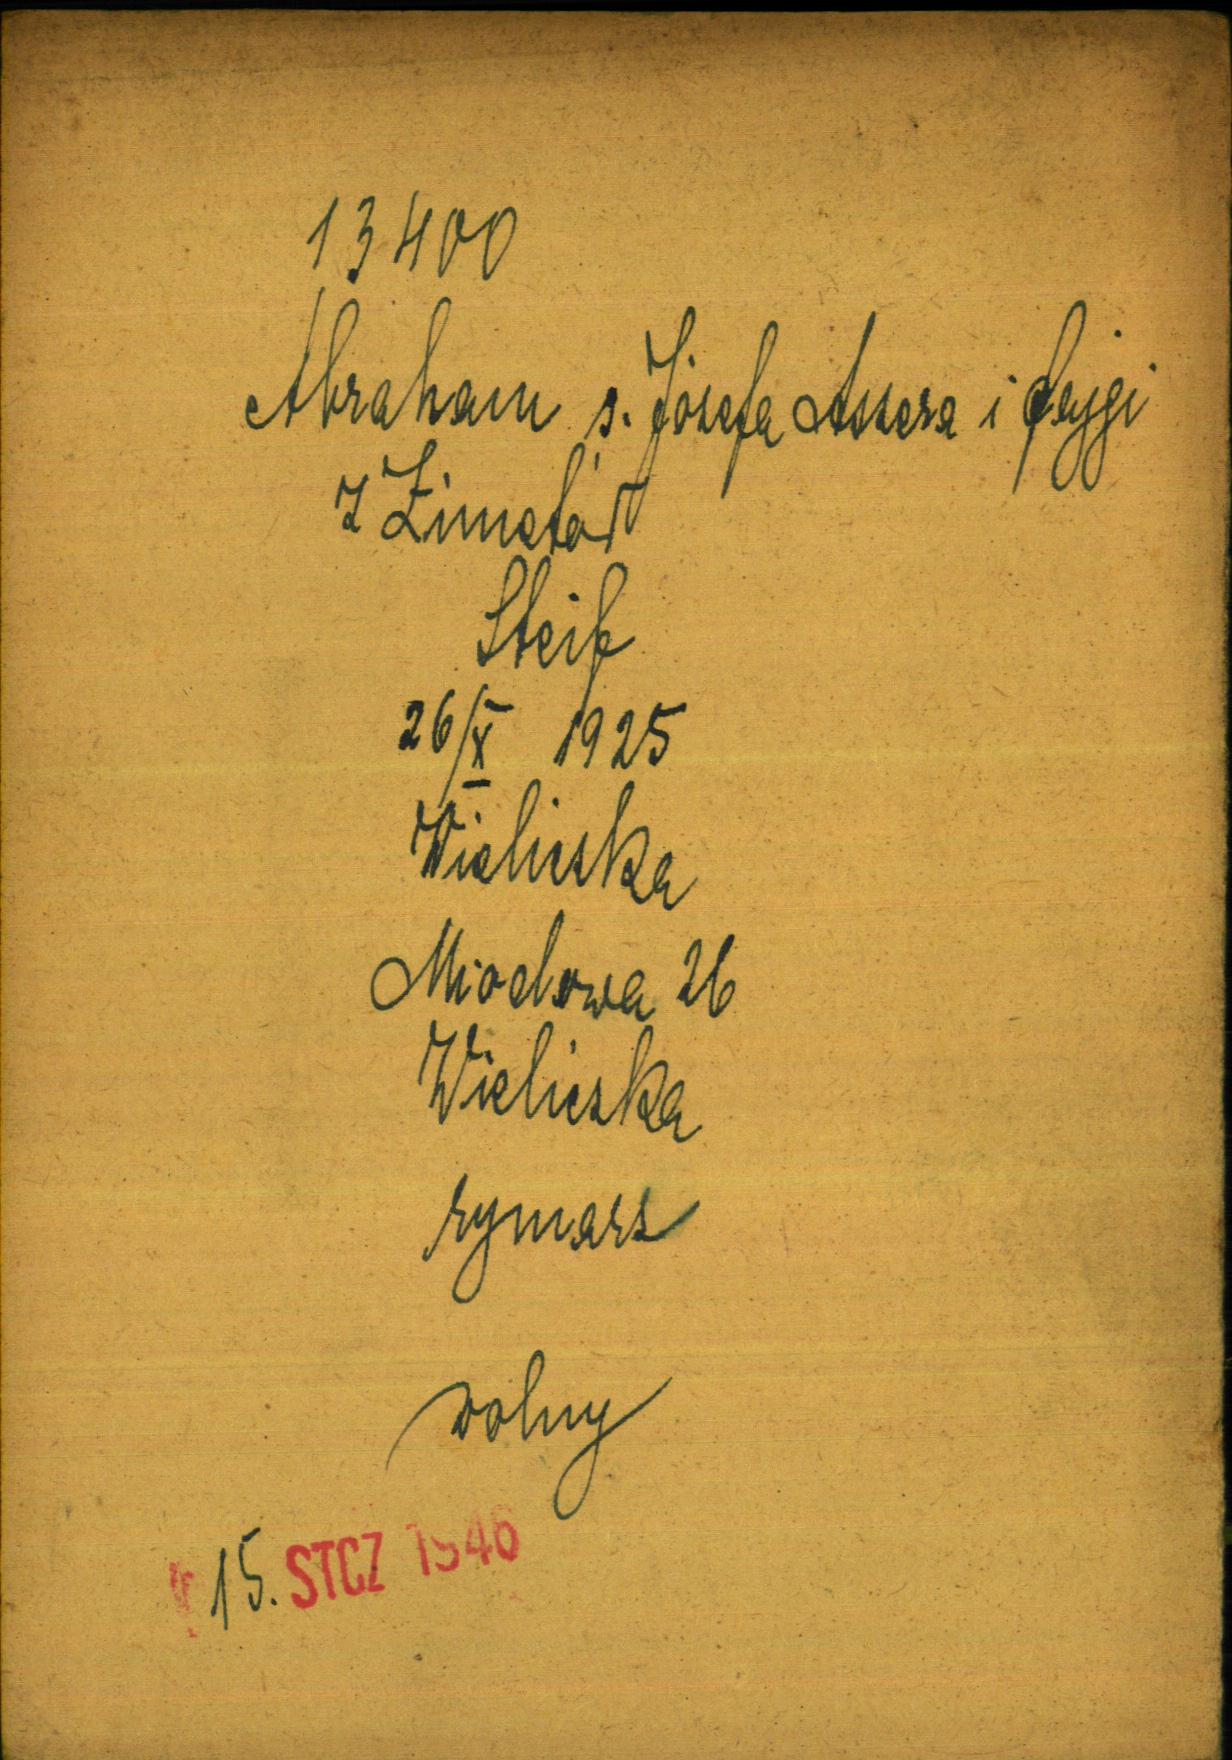 13400
Abraham s. Józefa Assera i Fajgi
z Zimetów
Steif
26/X 1925
Wieliczka
Miodowa 26
Wieliczka
rymarz
wolny
15. STCZ 1946